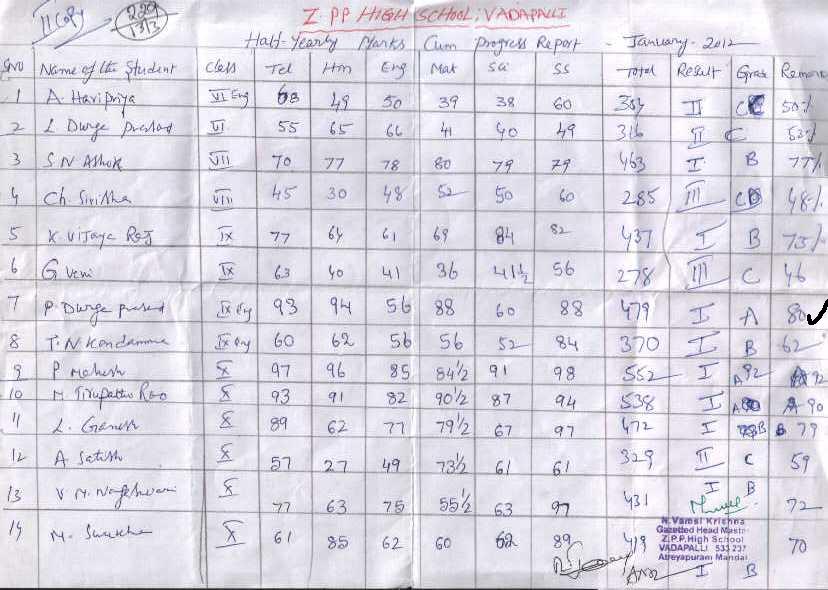 II Copy
229
13/3
Z.PP HIGH SCHOOL; VADAPALLI
Half-Yearly Marks Cum Progress Report - January-2012
SNO Name of the Student Class Tel Hin Eng Mat Sci SS Total Result Grade Remark
1 A. Haripriya VI Eng 68 49 50 39 38 60 II C 50%
2 L. Durga prasad VI 55 65 66 41 40 49 316 II C 53%
3 S N Ashok VII 70 77 78 80 79 79 463 I B 77%
4 Ch. Sirisha VIII 45 30 48 52 50 60 285 III C 48%
5 K. Vijaya Raj IX 77 64 61 69 84 82 437 I B 73%
6 G Veni IX 63 40 41 36 41½ 56 278 III C 46
7 P. Durga prasad IX Eng 93 94 56 88 60 88 479 I A 80
8 T. N Kondamma IX Eng 60 62 56 56 52 84 370 I B 62
9 P Mahesh X 97 96 85 84½ 91 98 552 I A 92 A 92
10 M. Tirupatho Rao X 93 91 82 90½ 87 94 538 I A A-90
11 L. Ganesh X 89 62 77 79½ 67 97 472 I B B 79
12 A Satish X 57 27 49 73½ 61 61 329 II C 59
13 V M. Nageshwari X 77 63 75 55½ 63 97 431 I B 72
14 M. X 61 85 62 60 62 89 419 I B 70
N. Vamsi Krishna
Gazetted Head Maste
Z.P.P. High School
VADAPALLI 533 237
Atreyapuram Mandal